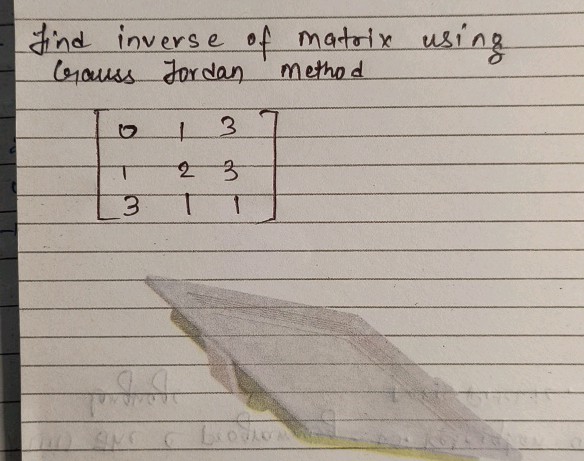 Find inverse of matrix using
Gauss Jordan Method
0 1 3
1 2 3
3 1 1